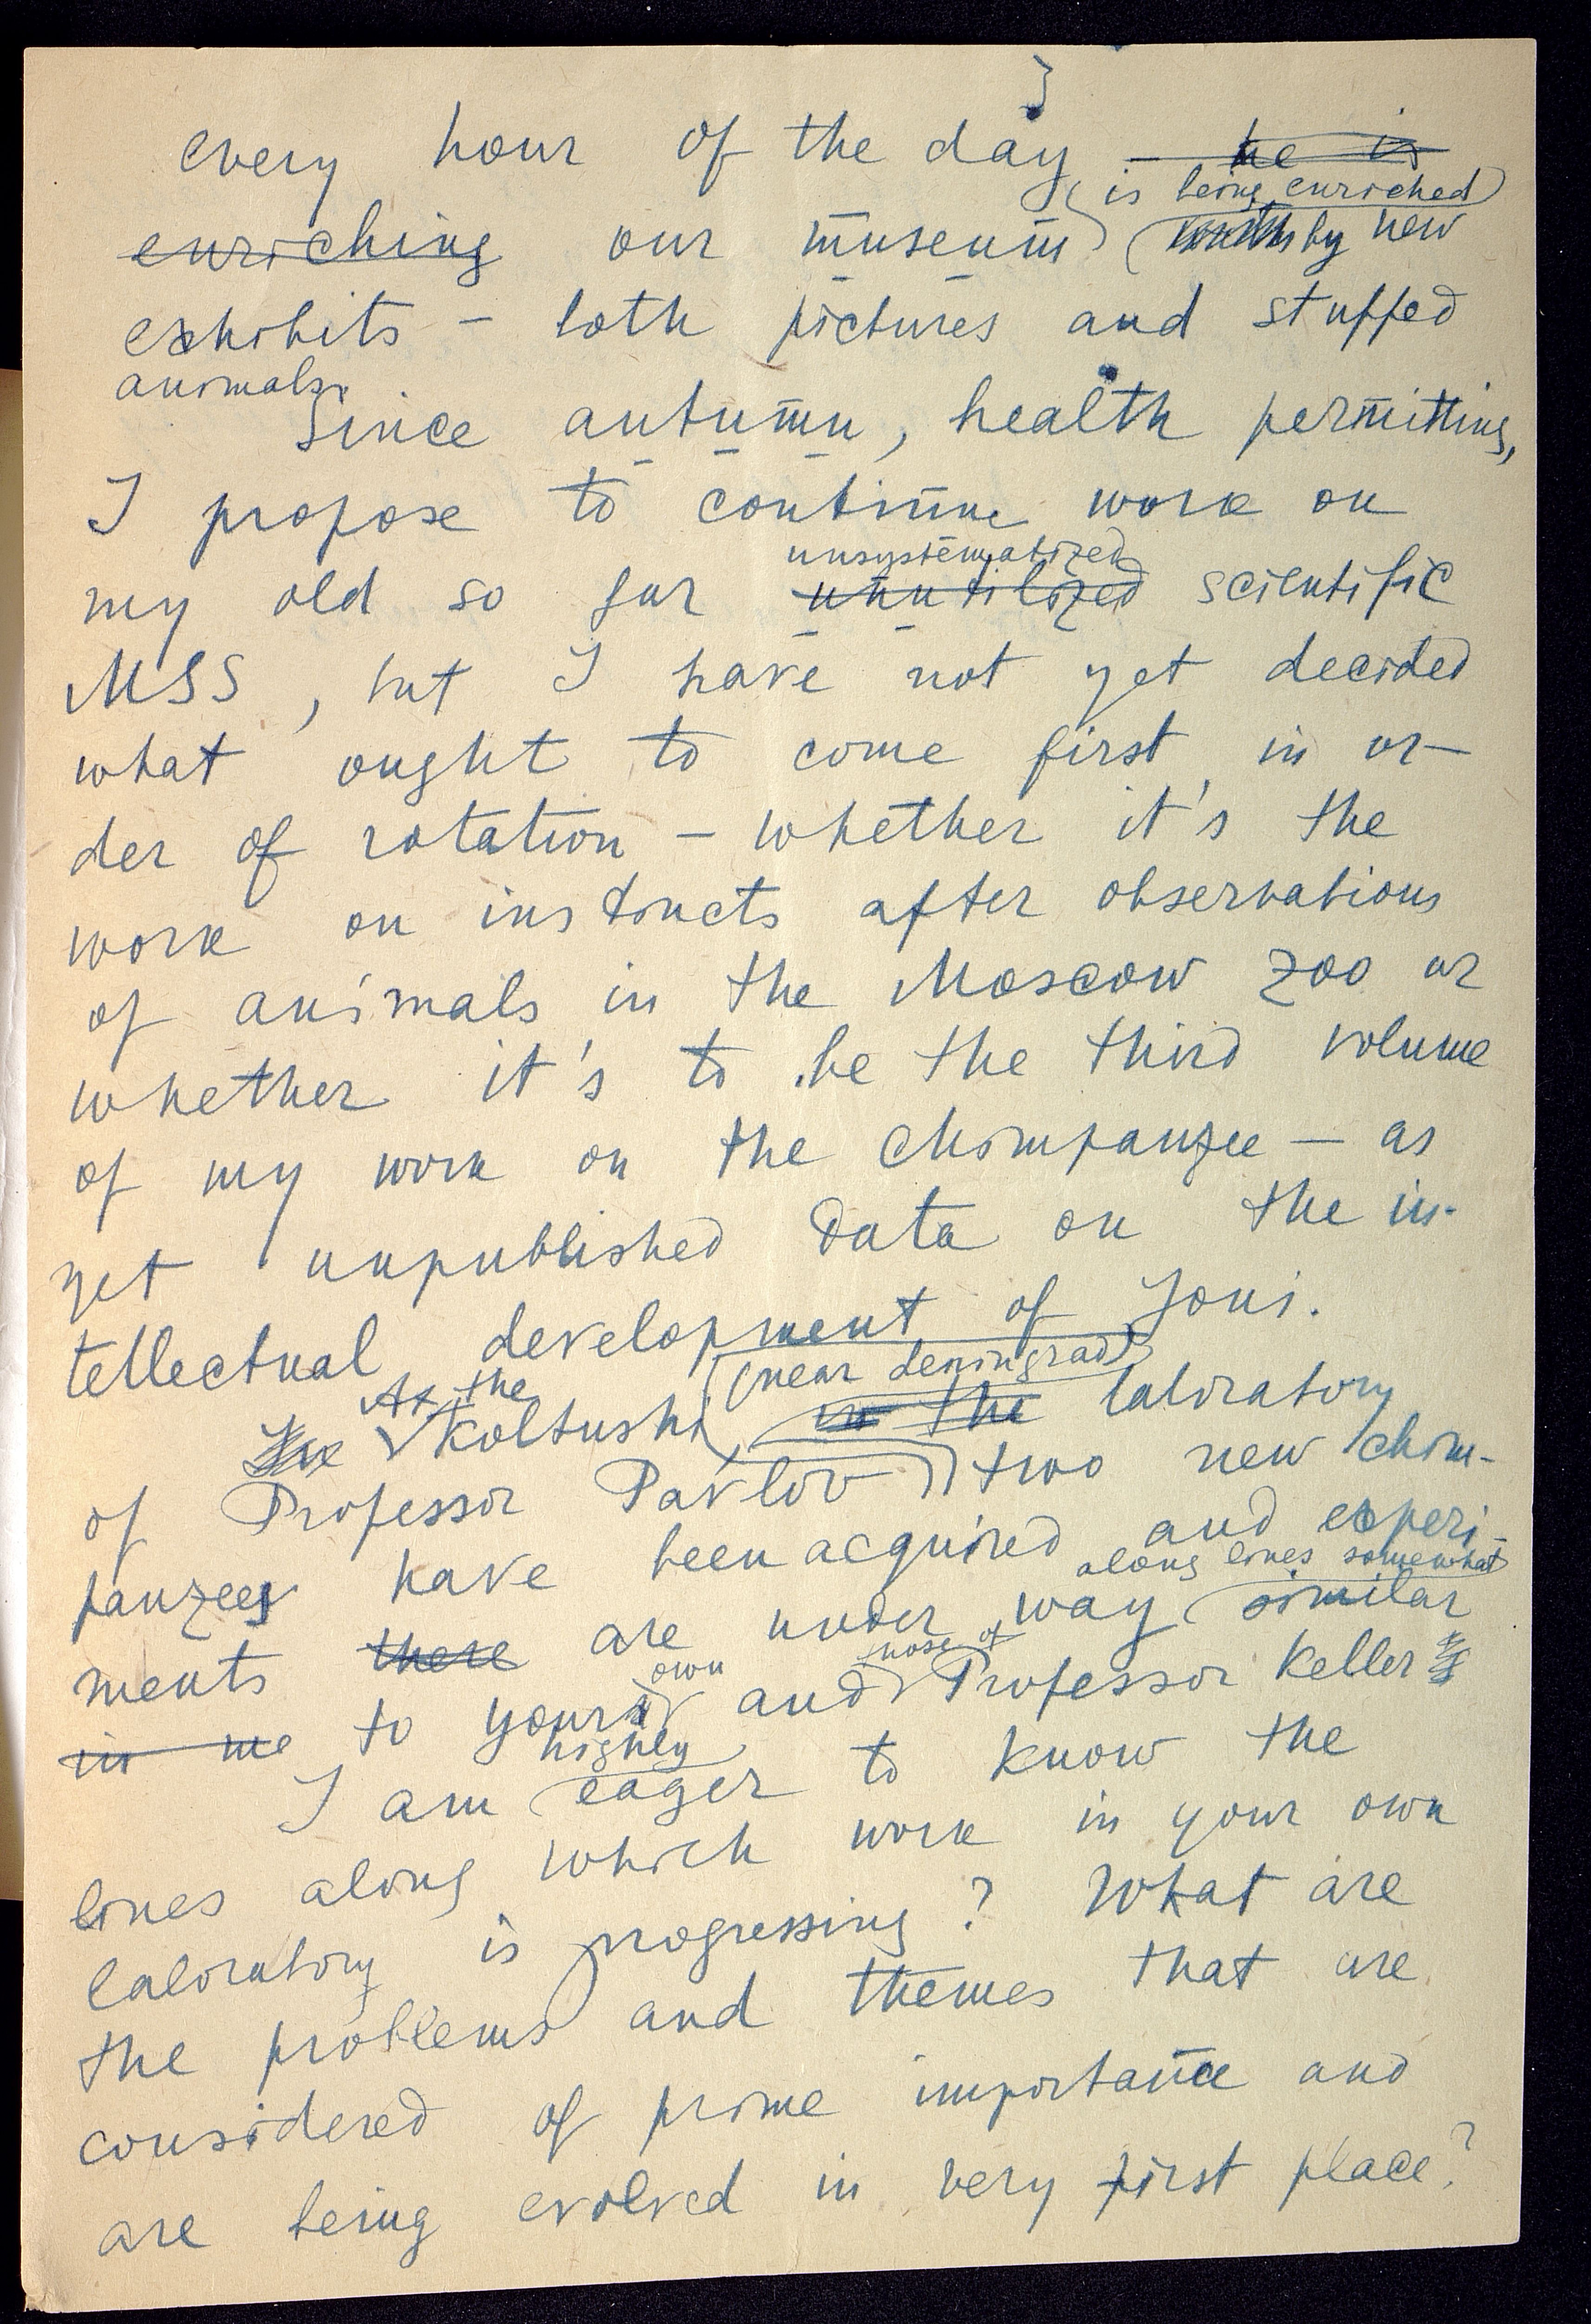 every hour of the day – he is
is being enriched
enriching our museum with by new
exhibits – both pictures and stuffed
animals.
Since autumn, health permitting,
I propose to continue work on
unsystematized
my old so far unutilized scientific
MSS, but I have not yet decided
what ought to come first, in or–
der of rotation – whether it's the
work on instincts after observations
of animals in the Moscow Zoo or
whether it's to be the third volume
of my work on the chimpanzee – as
yet unpublished data on the in-
tellectual development of Joni.
At the (near Leningrad)
Koltushi, in the laboratory
of Professor Pavlov two new chim-
panzees have been acquired and experi-
along lines somewhat
ments there are under way similar
own those of
in me to yours and Professor Keller's
highly
I am eager to know the
lines along which work in your own
laboratory is progressing? What are
the problems and themes that are
considered of prime importance and
are being evolved in very first place?